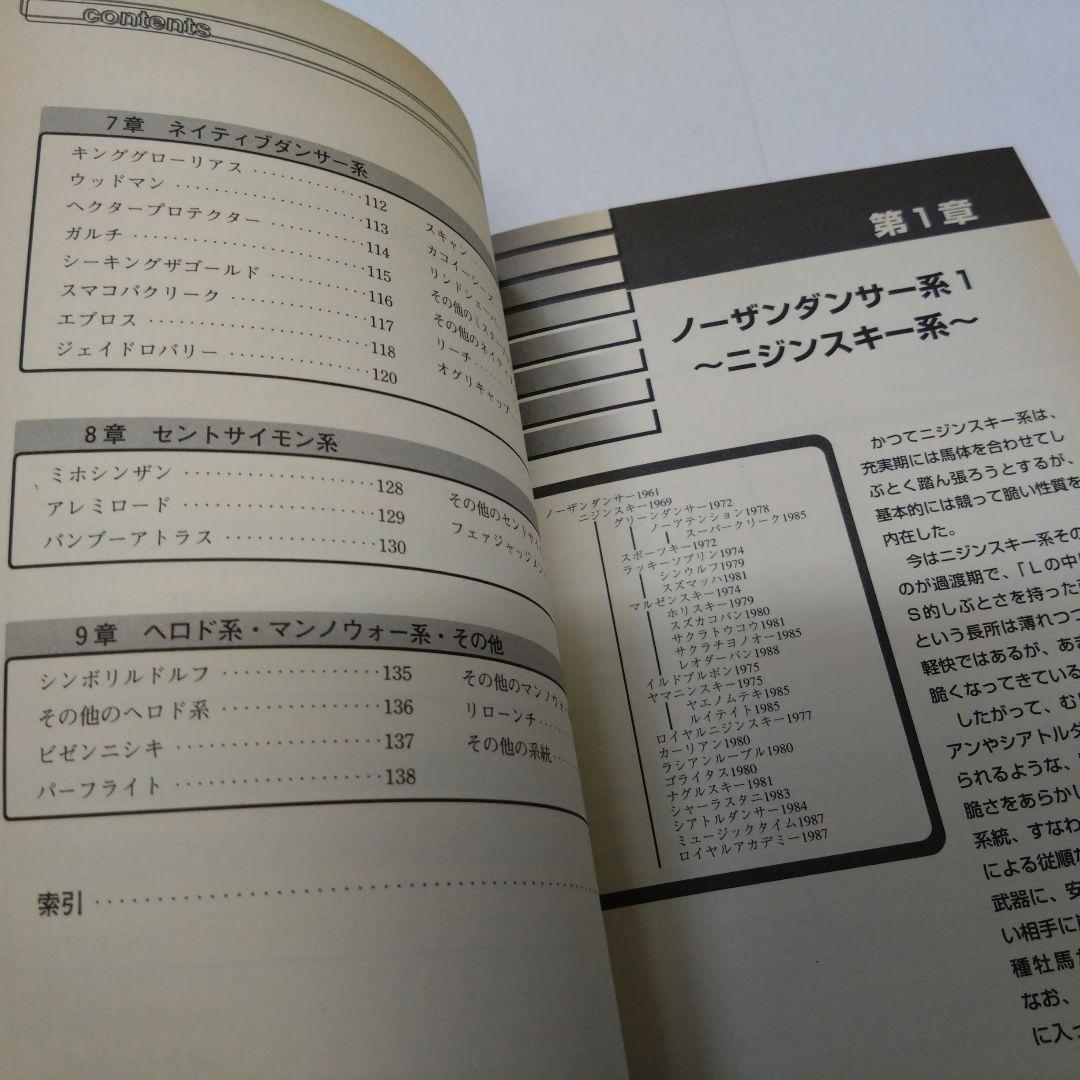 contents
7章 ネイティブダンサー系
キンググローリアス ・・・・・・・・・・・・112
ウッドマン ・・・・・・・・・・・・・・・・・・113
ヘクタープロテクター ・・・・・・・・・・114
ガルチ ・・・・・・・・・・・・・・・・・・・・・・115
シーキングザゴールド ・・・・・・・・・・116
スマコバクリーク ・・・・・・・・・・・・・・117
エブロス ・・・・・・・・・・・・・・・・・・・・118
ジェイドロバリー ・・・・・・・・・・・・・・120
スキャン
カコイーシーズ
リンドシェーバー
その他のミスター
その他のネイティ
リーチ
オグリキャップ
8章 セントサイモン系
ミホシンザン ・・・・・・・・・・・・・・・・128
アレミロード ・・・・・・・・・・・・・・・・129
バンブーアトラス ・・・・・・・・・・・・130
その他のセントサイ
フェアジャッジメン
9章 ヘロド系・マンノウォー系・その他
シンボリルドルフ ・・・・・・・・・・・・135
その他のヘロド系 ・・・・・・・・・・・・136
ビゼンニシキ ・・・・・・・・・・・・・・・・137
パーフライト ・・・・・・・・・・・・・・・・138
その他のマンノウォー
リローンチ
その他の系統
索引
第1章
ノーザンダンサー系1
〜ニジンスキー系〜
ノーザンダンサー1961
ニジンスキー1969
グリーンダンサー1972
ノーアテンション1978
スーパークリーク1985
スポーツキー1972
ラッキーソブリン1974
シンウルフ1979
スズマッハ1981
マルゼンスキー1974
ホリスキー1979
スズカコバン1980
サクラトウコウ1981
サクラチヨノオー1985
レオダーバン1988
イルドブルボン1975
ヤマニンスキー1975
ヤエノムテキ1985
ルイテイト1985
ロイヤルニジンスキー1977
カーリアン1980
ラシアンルーブル1980
ゴライタス1980
ナグルスキー1981
シャーラスタニ1983
シアトルダンサー1984
ミュージックタイム1987
ロイヤルアカデミー1987
かつてニジンスキー系は、
充実期には馬体を合わせてし
ぶとく踏ん張ろうとするが、
基本的には競って脆い性質を
内在した。
今はニジンスキー系その
のが過渡期で、「Lの中
S的しぶとさを持った
という長所は薄れつつ
軽快ではあるが、あ
脆くなってきている
したがって、む
アンやシアトルダ
られるような、
脆さをあらかし
系統、すなわ
による従順
武器に、安
い相手に
種牡馬
なお、
に入っ